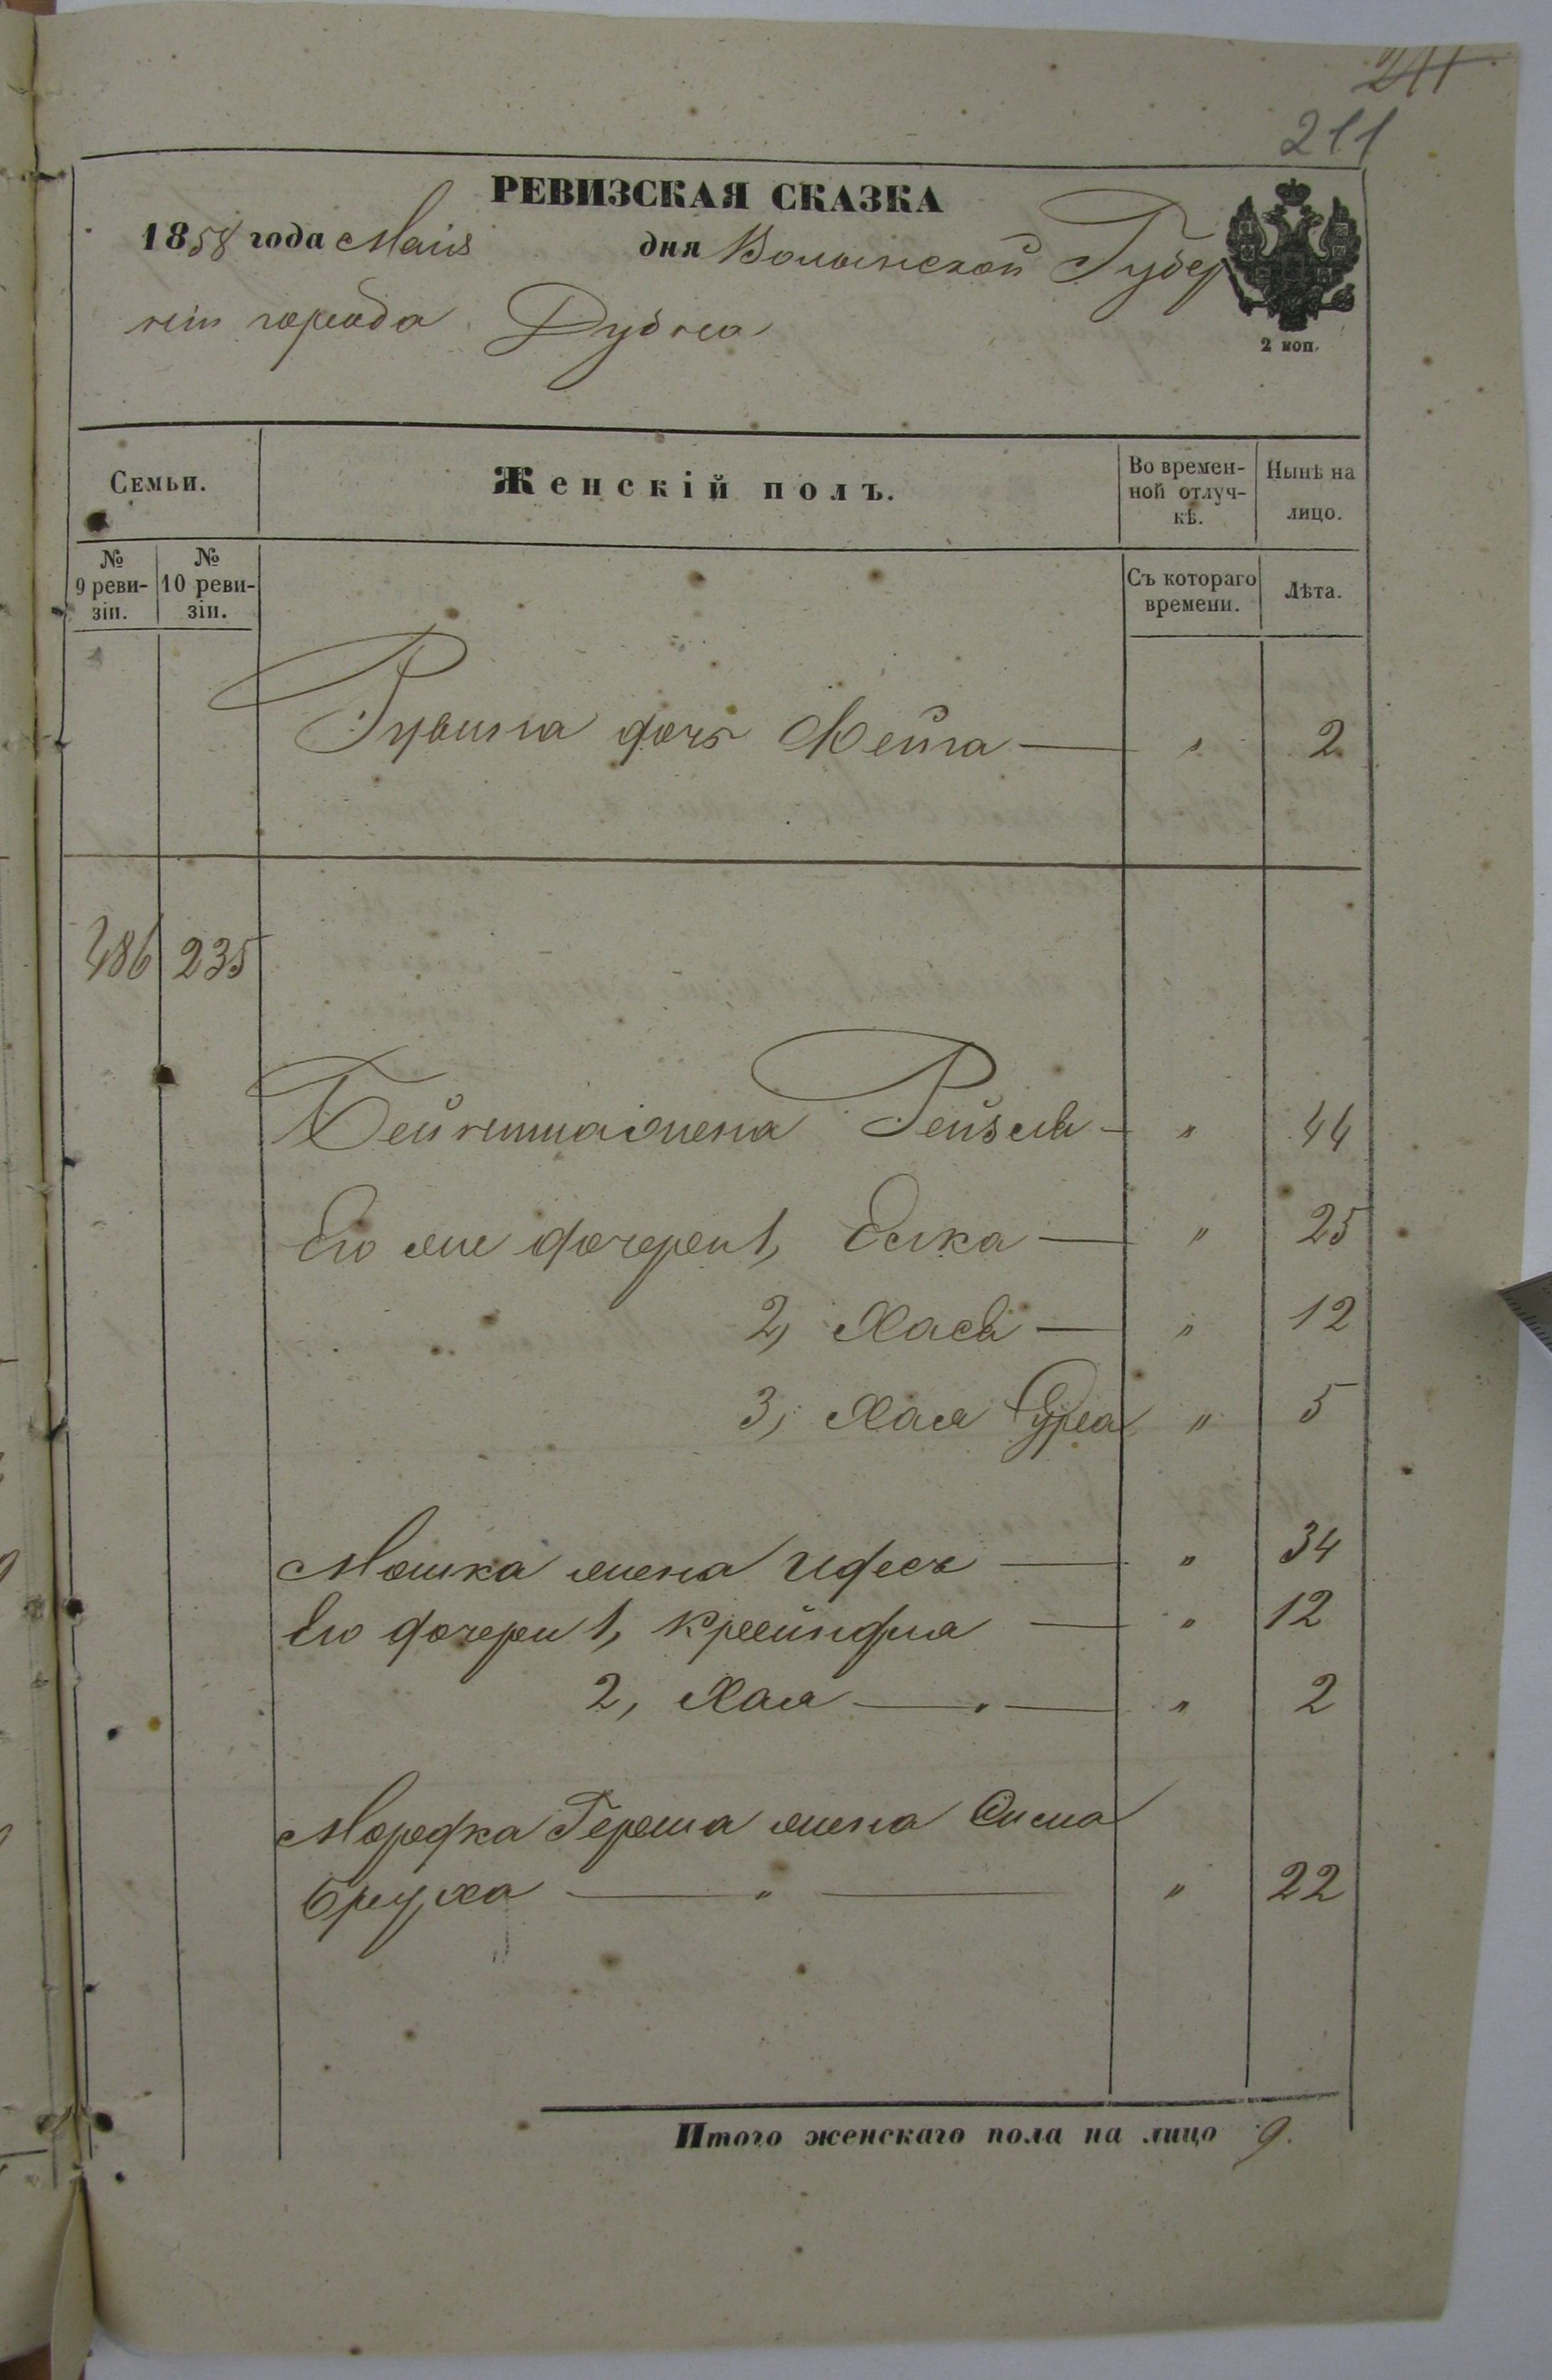 211
211
РЕВИЗСКАЯ СКАЗКА
1858 года Маія дня Волынской Губер
ніи города Дубна
2 коп.
Семьи.
Женскій полъ.
Во времен-
ной отлуч-
кѣ.
Нынѣ на
лицо.
№
9 реви-
зіи.
№
10 реви-
зіи.
Съ котораго
времени.
Лѣта.
Рувина дочь Мейта — " 2
486 235
Бейниша жена Рейзель — " 44
Его же дочери 1, Елка — " 25
2, Хася — " 12
3, Хая Сура " 5
Мошка жена Идесъ — " 34
Его дочери 1, Крейндля — " 12
2, Хая — " — " 2
Мордка Герша жена Сима
Бруха — " — " 22
Итого женскаго пола на лицо 9.